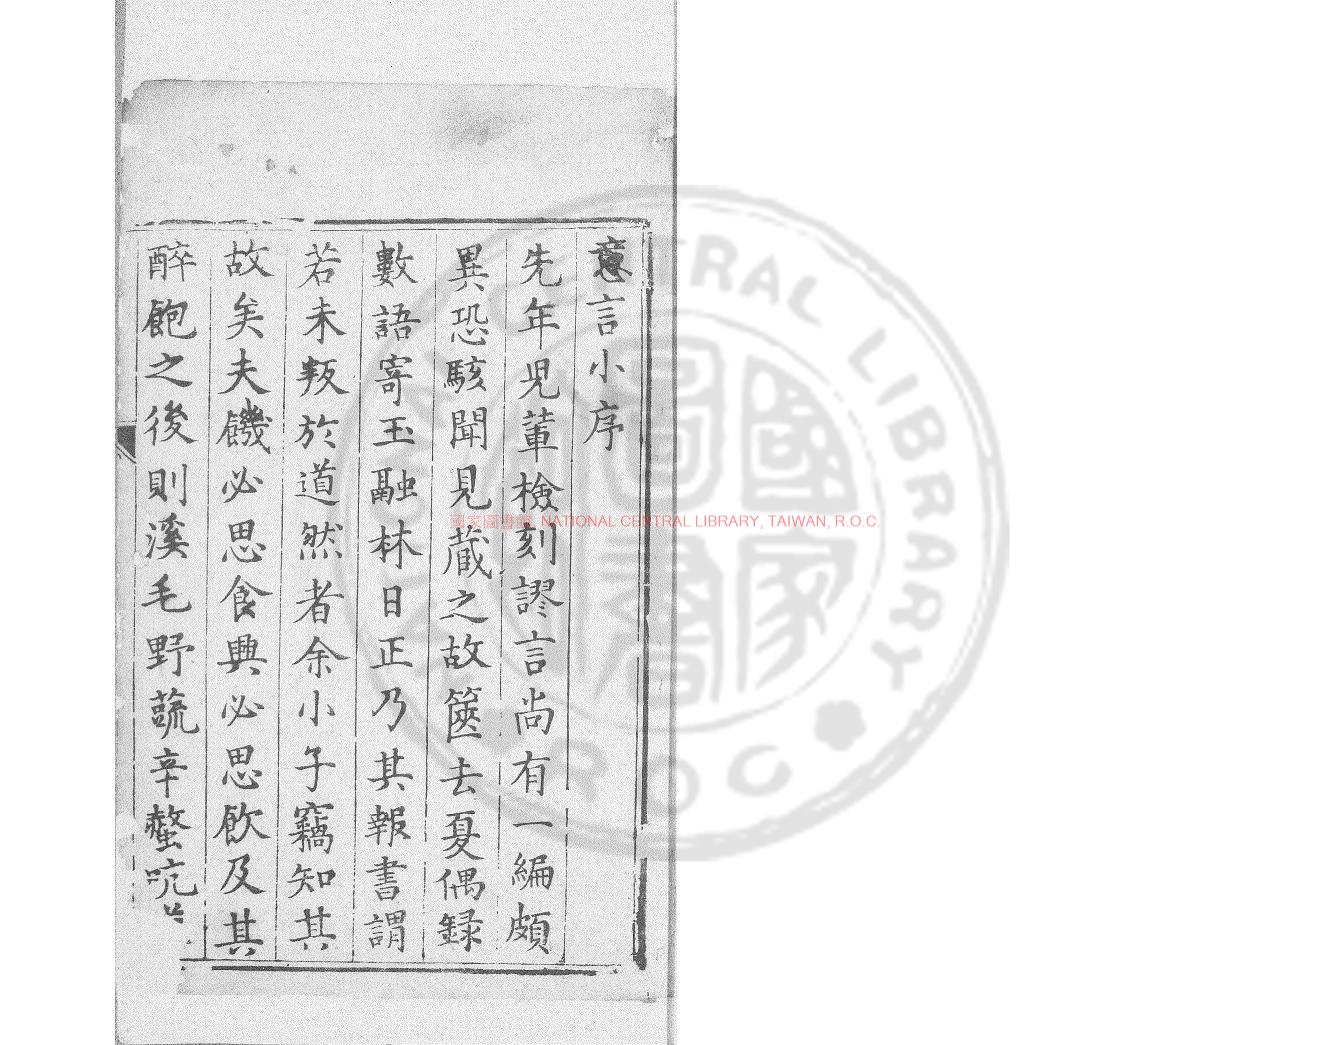 意言小序
先年児軰檢刻謬言尚有一編頗
異恐駭聞見藏之故篋去夏偶録
數語寄玉融林日正乃其報書謂
若未叛於道然者余小子竊知其
故矣夫饑必思食輿必思飲及其
醉飽之後則溪毛野蔬辛螫吭
國家圖書館, NATIONAL CENTRAL LIBRARY, TAIWAN, R.O.C.
NATIONAL CENTRAL LIBRARY
R O C
國家圖書館